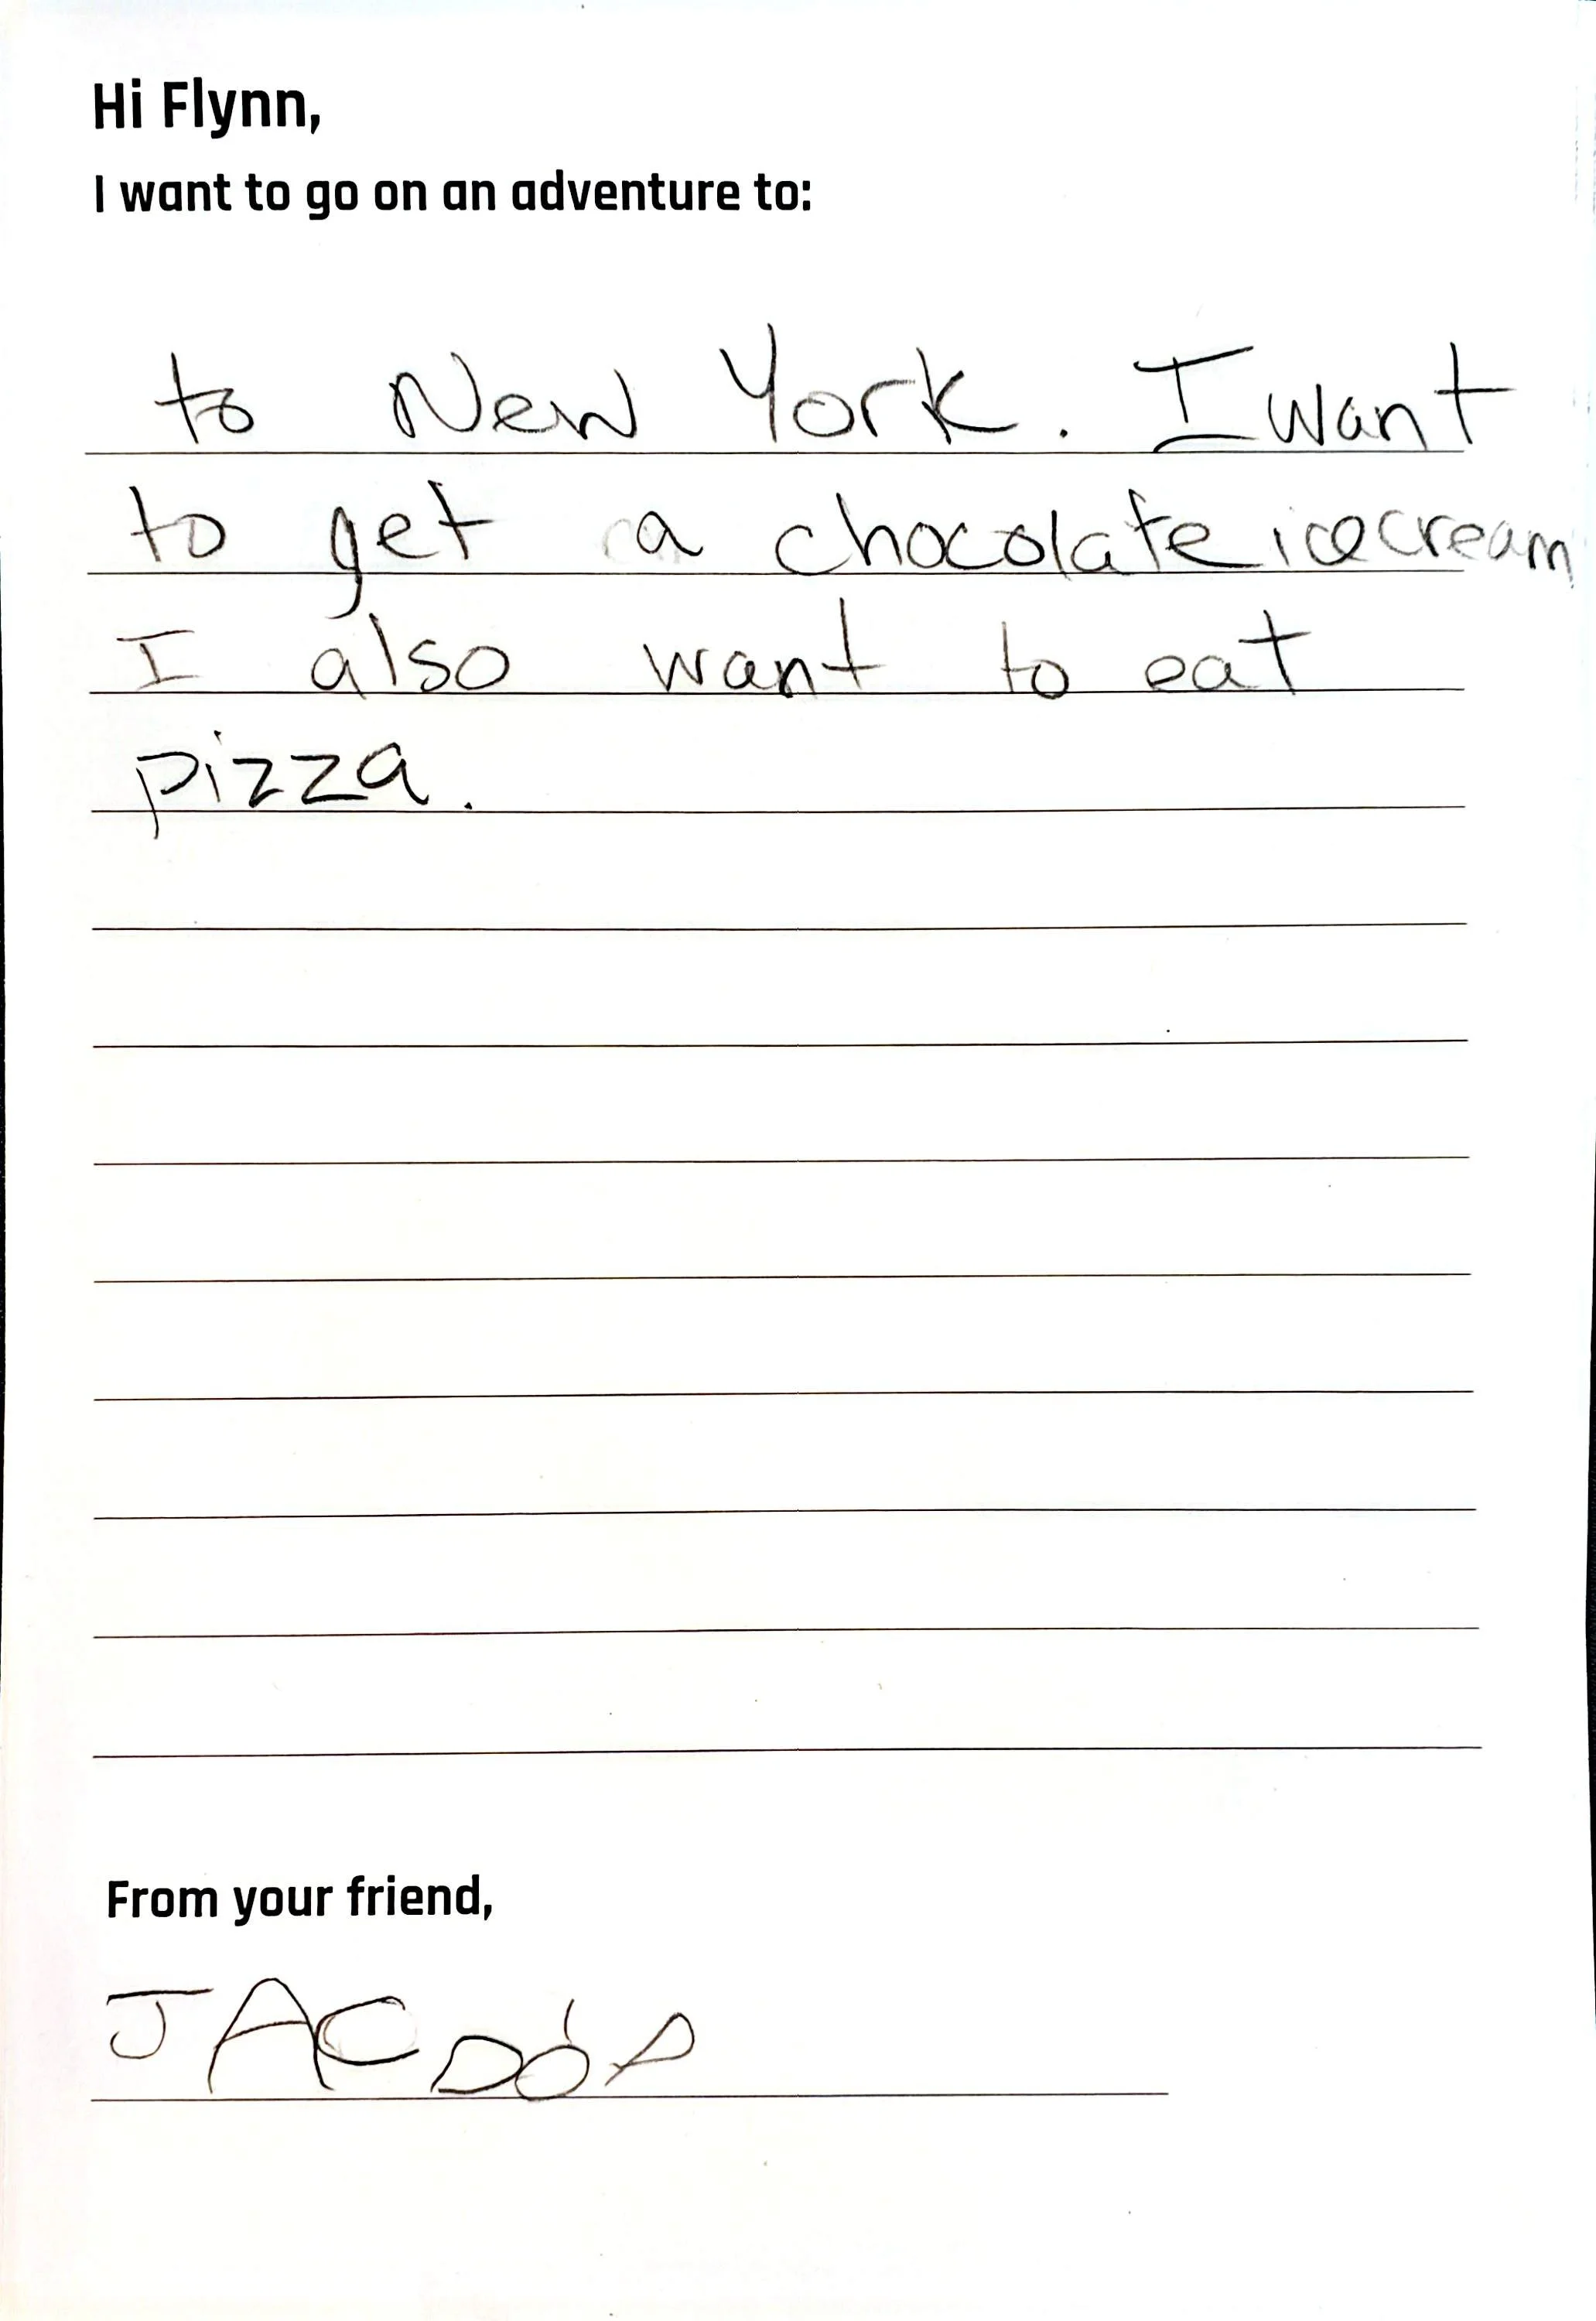 Hi Flynn,
I want to go on an adventure to:
to New York. I want
to get a chocolate icecream
I also want to eat
pizza.
From your friend,